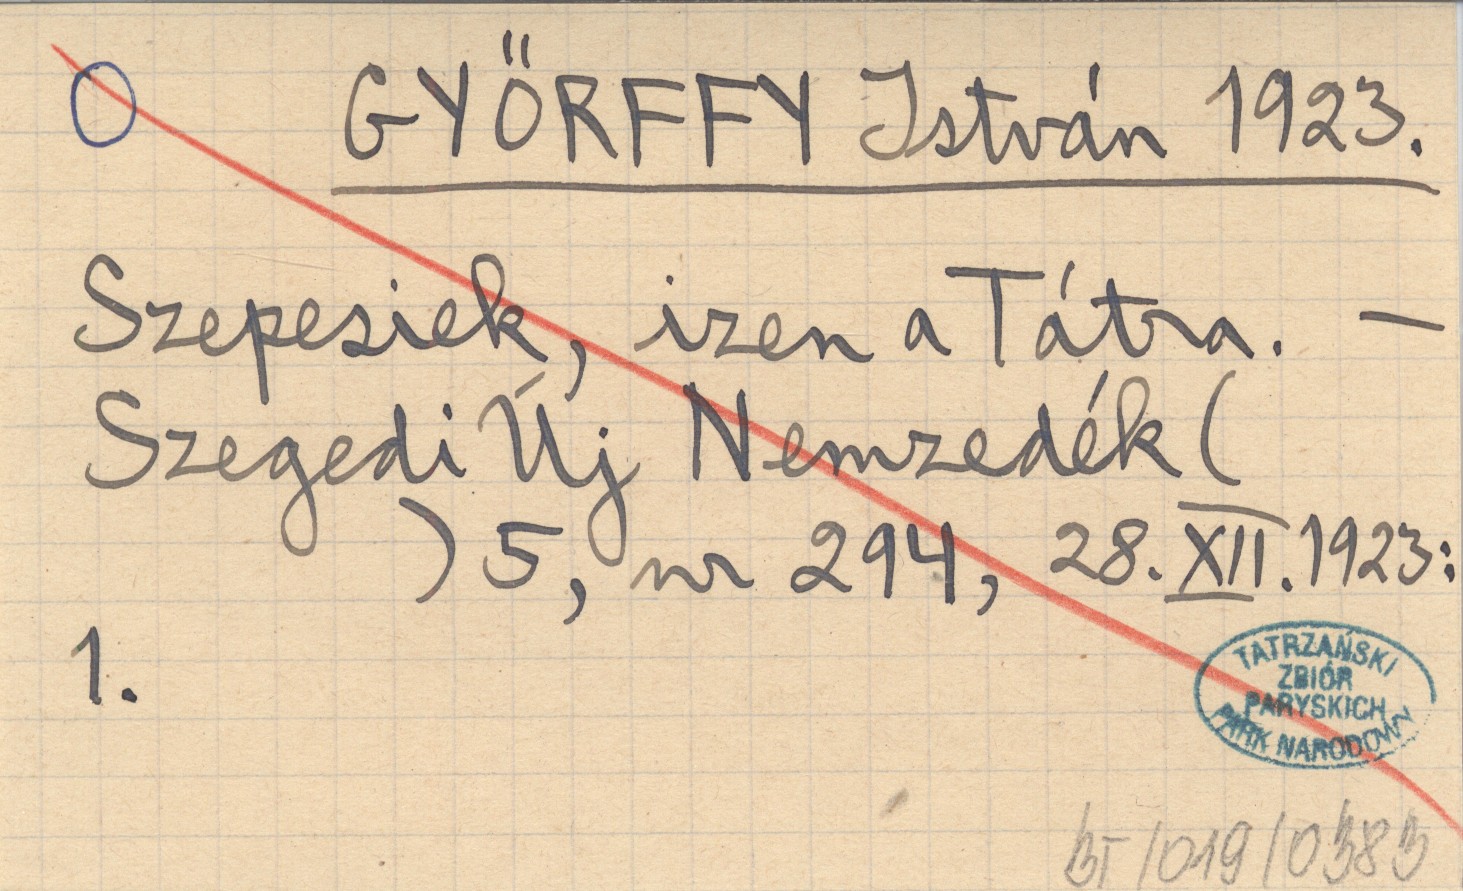 O GYŐRFFY István 1923.
Szepesiek, izen a Tátra. —
Szegedi Új Nemzedék (
) 5, nr 294, 28. XII. 1923:
1.
TATRZAŃSKI
ZBIÓR
PARYSKICH
PARK NARODOWY
BT/019/0383